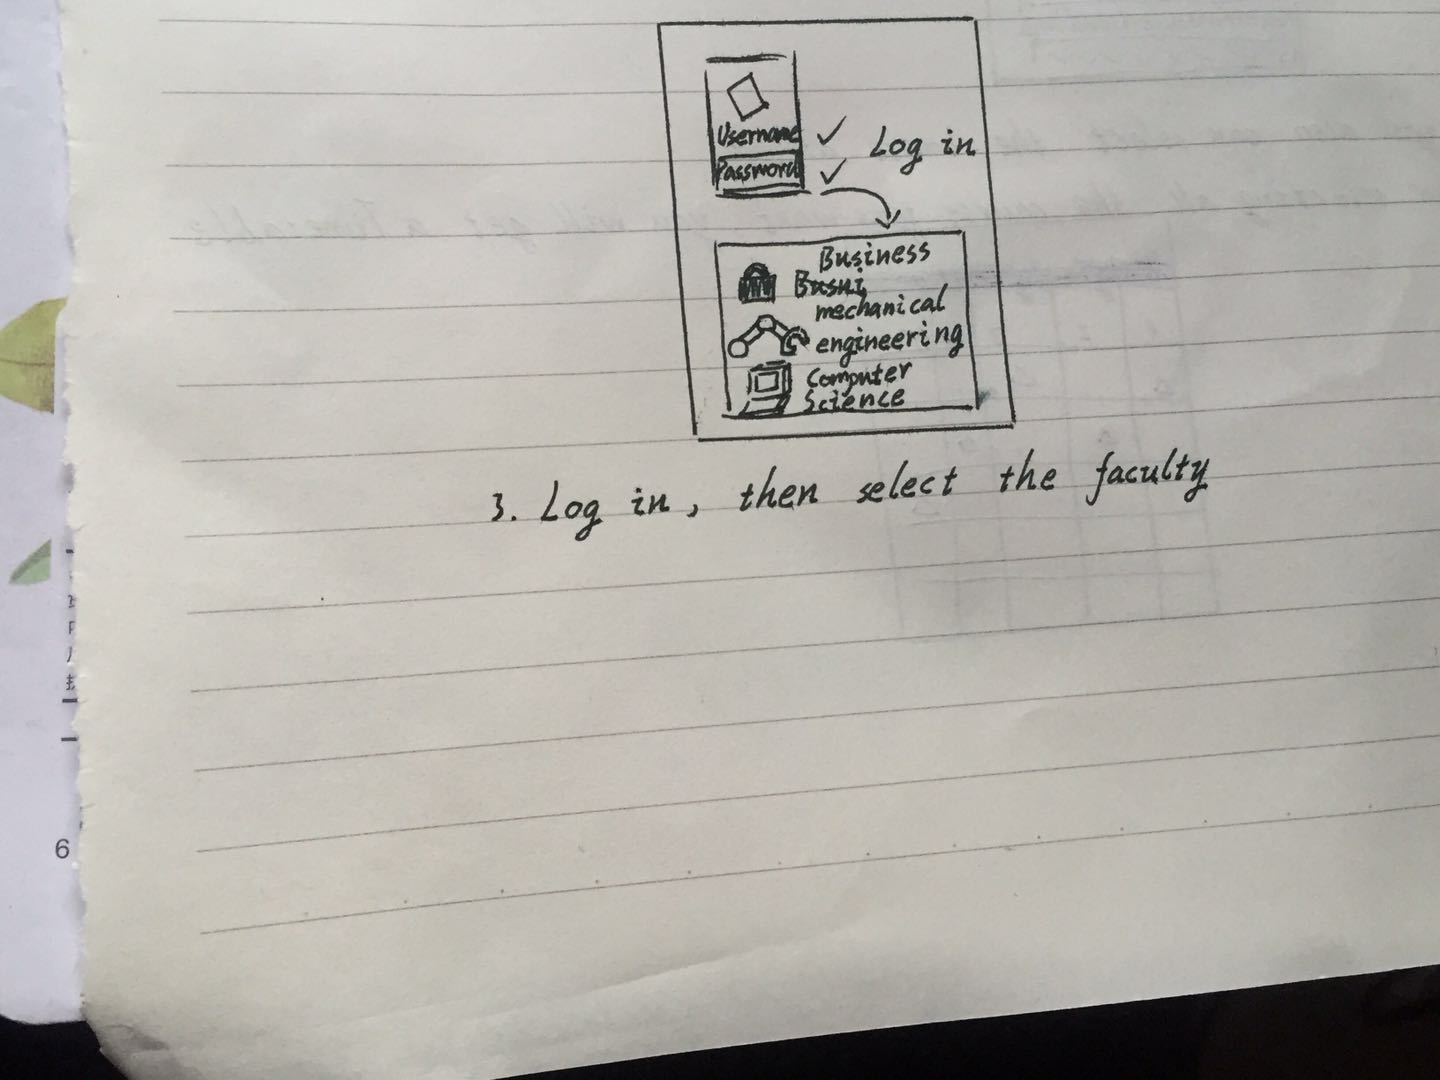 Username
Password
Log in
Business
Busni
mechanical
engineering
Computer
Science
3. Log in, then select the faculty
6